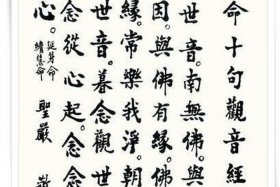 命十句觀音經
世音。南無佛。與
因。與佛有緣。佛
緣。常樂我淨。朝
世音。暮念觀世
念從心起。念念
心。
延身命
續慧命
聖嚴